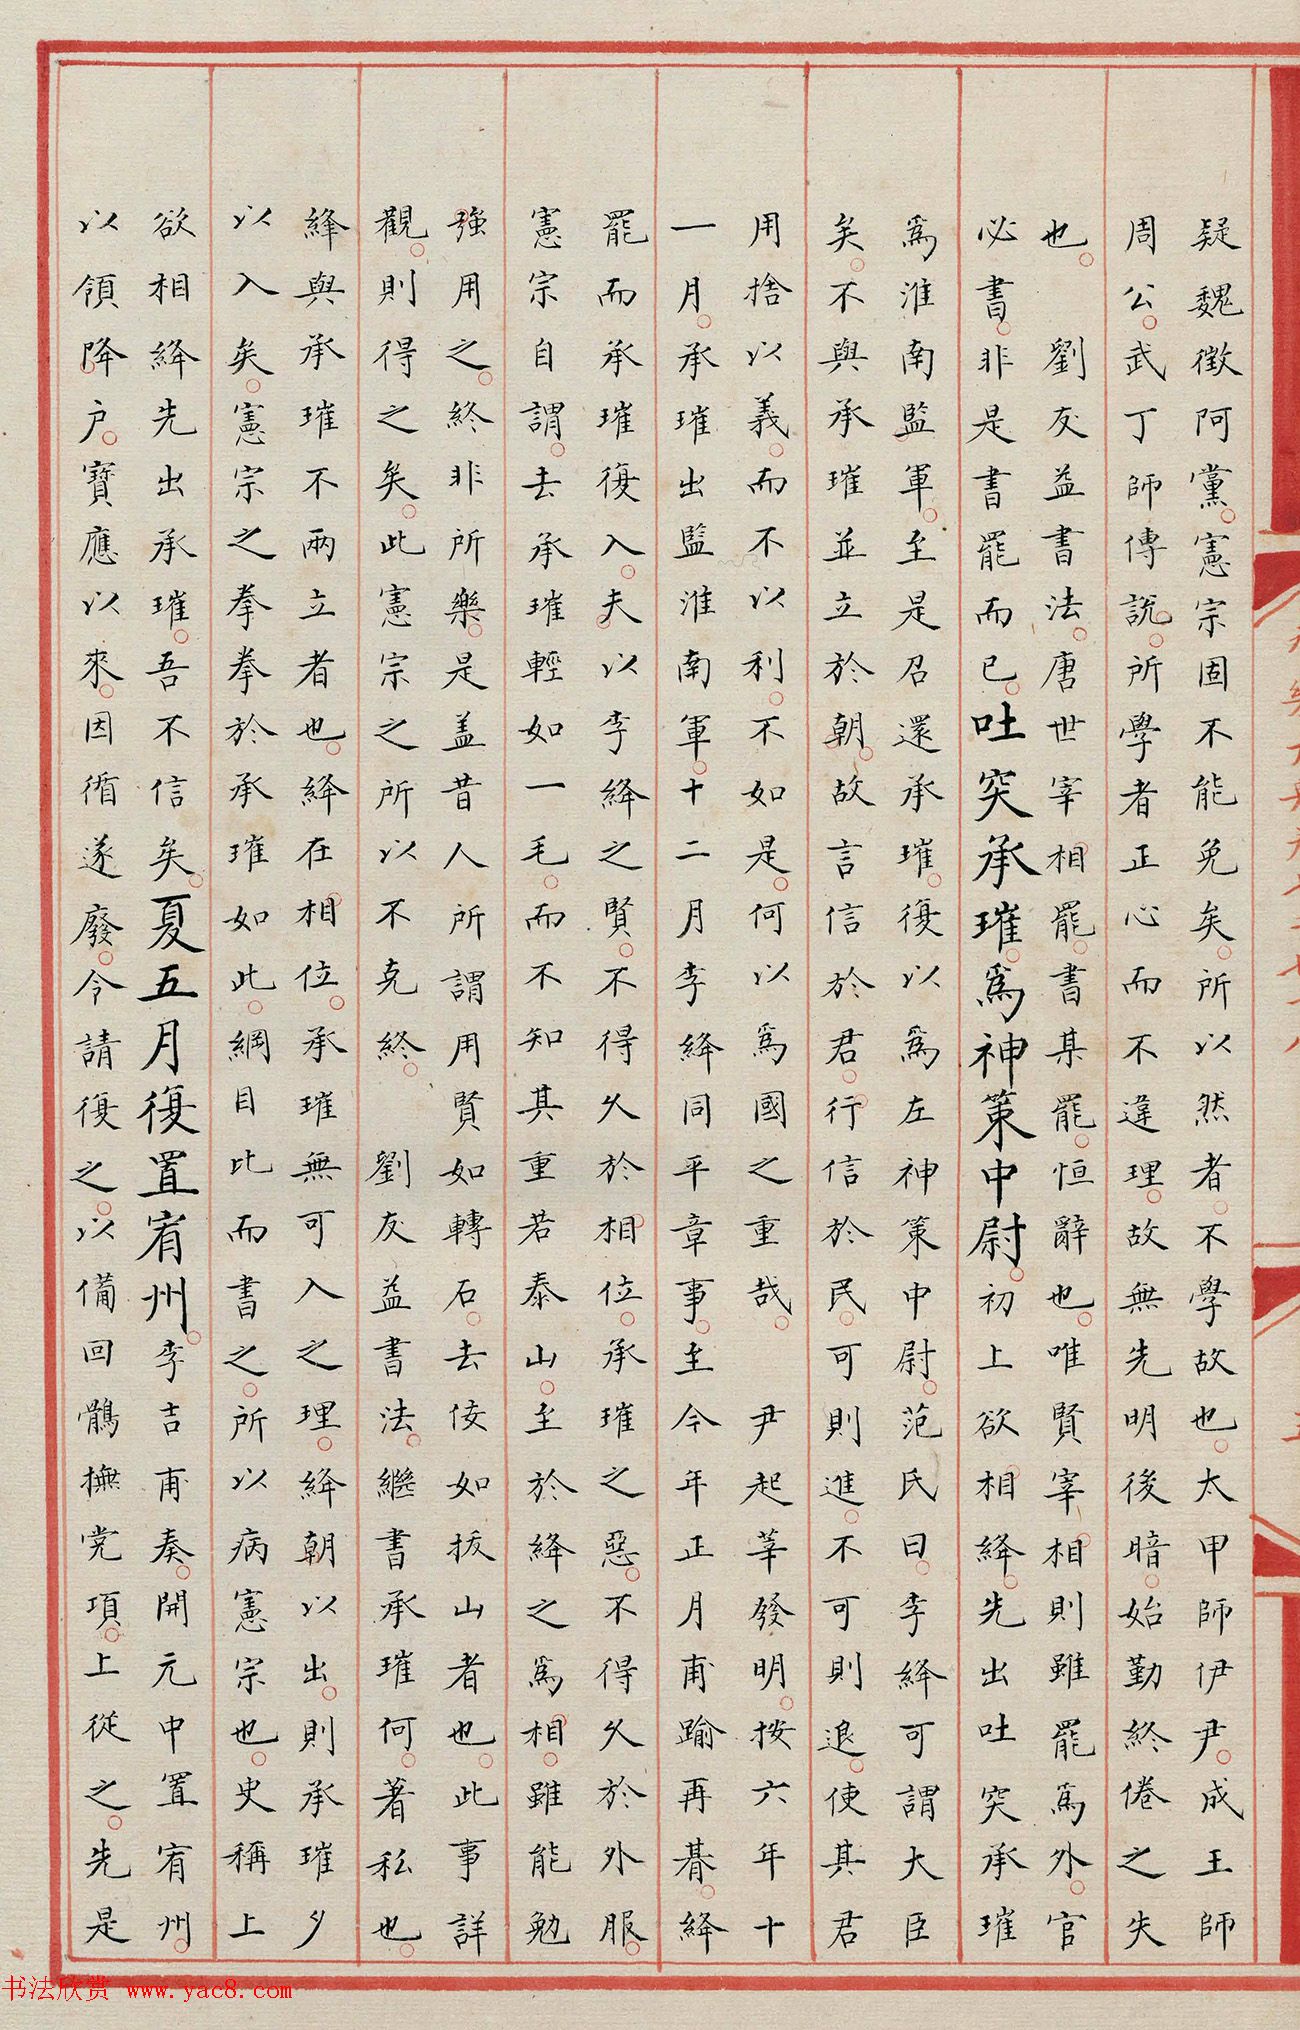 疑魏徵阿黨憲宗固不能免矣所以然者不學故也太甲師伊尹成王師
周公武丁師傅說所學者正心而不違理故無先明後暗始勤終倦之失
也　劉友益書法唐世宰相罷書某罷恒辭也唯賢宰相則雖罷爲外官
必書非是書罷而已吐突承璀爲神策中尉初上欲相絳先出吐突承璀
爲淮南監軍至是召還承璀復以爲左神策中尉范氏曰李絳可謂大臣
矣不與承璀並立於朝故言信於君行信於民可則進不可則退使其君
用捨以義而不以利不如是何以爲國之重哉　尹起莘發明按六年十
一月承璀出監淮南軍十二月李絳同平章事至今年正月甫踰再朞絳
罷而承璀復入夫以李絳之賢不得久於相位承璀之惡不得久於外服
憲宗自謂去承璀輕如一毛而不知其重若泰山至於絳之爲相雖能勉
強用之終非所樂是盖昔人所謂用賢如轉石去佞如拔山者也此事詳
觀則得之矣此憲宗之所以不克終　劉友益書法繼書承璀何著私也
絳與承璀不兩立者也絳在相位承璀無可入之理絳朝以出則承璀夕
以入矣憲宗之拳拳於承璀如此綱目比而書之所以病憲宗也史稱上
欲相絳先出承璀吾不信矣夏五月復置宥州李吉甫奏開元中置宥州
以領降户寶應以來因循遂廢今請復之以備回鶻撫党項上從之先是
书法欣赏 www.yac8.com